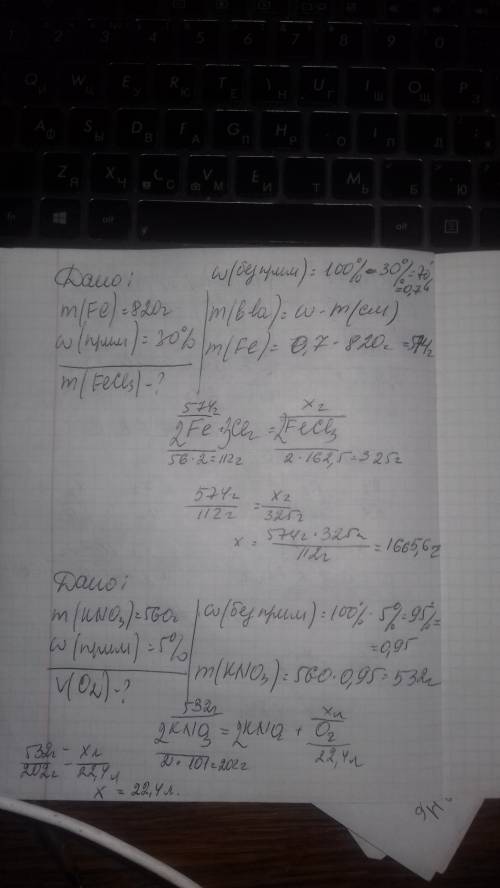 Дано:
m(Fe)=820г
w(прим)=30%
m(FeCl3)-?
w(без прим)=100%-30%=70%
=0,7
m(в-ва)=w·m(см)
m(Fe)=0,7·820г=574г
574г xг
2Fe+3Cl2=2FeCl3
56·2=112г 2·162,5=325г
574г/112г=xг/325г
x=574г·325г/112г=1665,6г
Дано:
m(KNO3)=560г
w(прим)=5%
V(O2)-?
w(без прим)=100%-5%=95%=
=0,95
m(KNO3)=560·0,95=532г
532г xл
2KNO3=2KNO2+O2
2·101=202г 22,4л
532г/202г=xл/22,4л
x=22,4л.